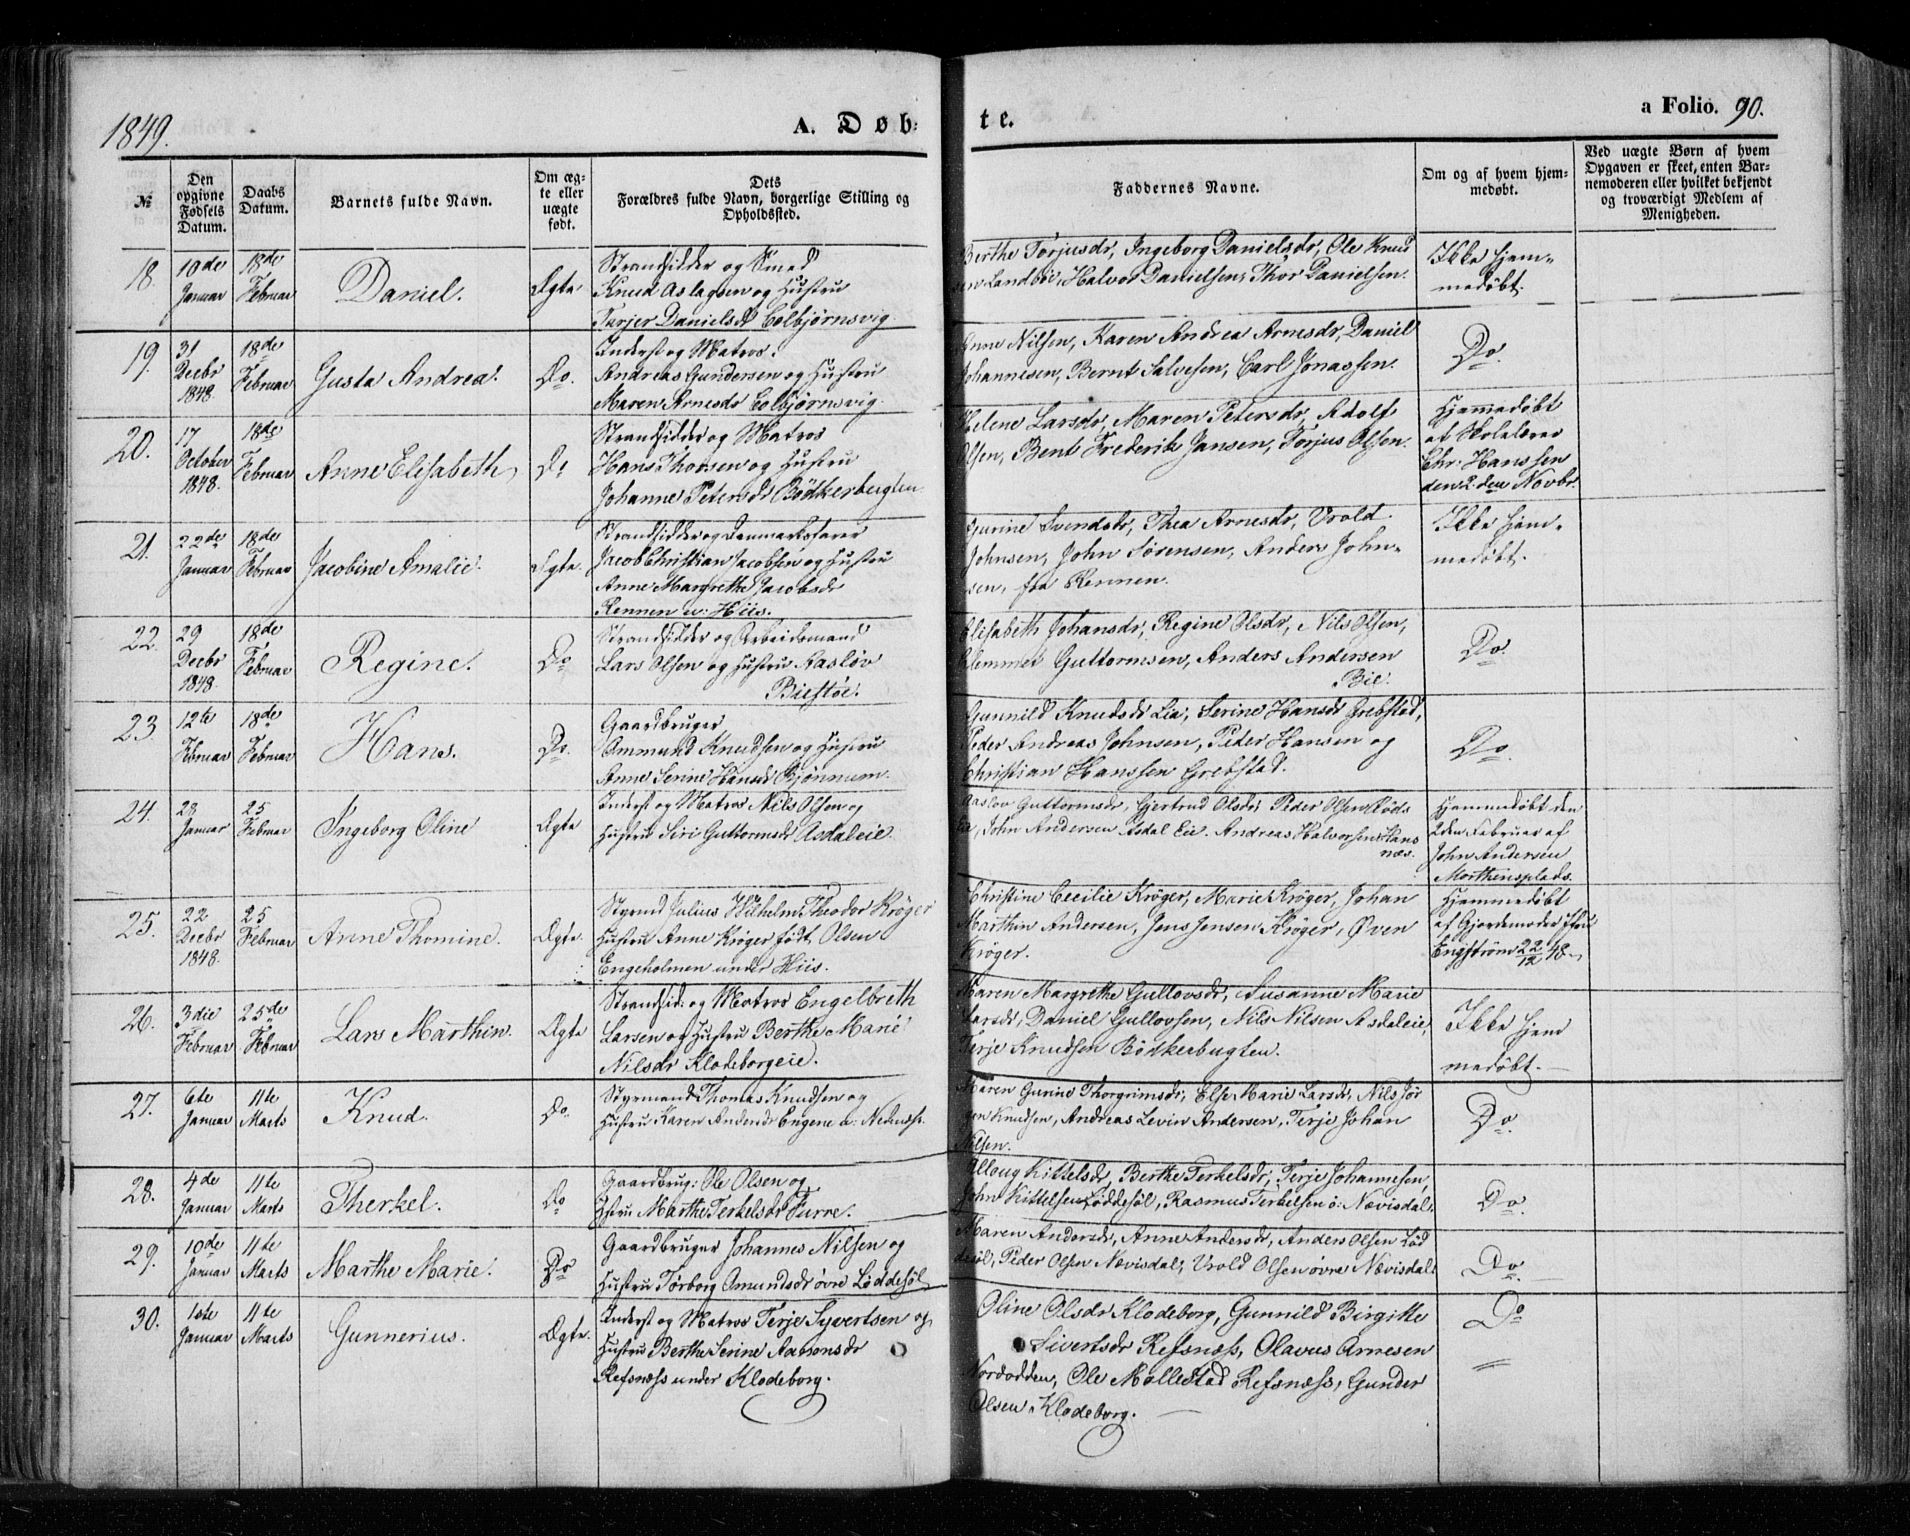 1849.
A. Døb-
te.
a Folio. 90.
№
Den opgivne Fødsels Datum.
Daabs Datum.
Barnets fulde Navn.
Om ægte eller uægte født.
Dets Forældres fulde Navn, borgerlige Stilling og Opholdssted.
Faddernes Navne.
Om og af hvem hjemmedøbt.
Ved uægte Børn af hvem Opgaven er skeet, enten Barnemoderen eller hvilket bekjendt og troværdigt Medlem af Menigheden.
18.
10de Januar
18de Februar
Daniel.
Ægte
Strandsidder og Smed
Knud Aslagsen og Hustru
Turjer Danielsdr Colbjørnsvig.
Berthe Torjusdr, Ingeborg Danielsdr, Ole Knud
sen Landböe, Halvor Danielsen, Thor Danielsen.
Ikke hjem-
medøbt.
19.
31 Decbr 1848.
18de Februar
Gusta Andrea.
Do.
Inderst og Matros.
Andreas Gundersen og Hustru
Maren Arnesdr Colbjørnsvig.
Anne Nilsen, Karen Andrea Arnesdr, Daniel
Johannesen, Bernt Salvesen, Carl Jonassen.
Do.
20.
17 October 1848.
18de Februar
Anne Elisabeth
Do
Strandsidder og Matros
Hans Thomsen og Hustru
Johanne Petersdr Bödkerbugten
Helene Larsdr, Maren Petersdr, Adolf
Olsen, Bent Frederik Jansen, Torjus Olsen.
Hjemmedøbt
af Skolelærer
Chr. Hanssen
den 2den Novbr.
21.
22de Januar
18de Februar
Jacobine Amalie.
Ægte.
Strandsidder og Danmarksfarer
Jacob Christian Jacobsen og Hustru
Anne Margrethe Jacobsdr
Rennen u: Hiis.
Gurine Svendsdr, Thea Arnesdr, Vrold
Johnsen, John Sørensen, Anders John-
sen, fra Rennen.
Ikke hjem-
medøbt.
22.
29 Decbr 1848.
18de Februar
Regine.
Do
Strandsidder og Arbeidsmand
Lars Olsen og Hustru Aaslöv
Biestöe.
Elisabeth Johansdr, Regine Olsdr, Nils Olsen,
Clemmet Guttormsen, Anders Andersen
Bie.
Do.
23.
12te Februar
18de Februar
Hans.
Do.
Gaardbruger
Ommund Knudsen og Hustru
Anne Serine Hansdr Bjönnum.
Gunnild Knudsdr Lia, Serine Hansdr Grebstad,
Peder Andreas Johnsen, Peder Hansen og
Christian Hanssen Grebstad.
Do
24.
28 Januar
25 Februar
Ingeborg Oline
Ægte
Inderst og Matros Nils Olsen og
Hustru Siri Guttormsdr Asdaleie.
Aaslov Guttormsdr, Gjertrud Olsdr, Peder Olsen Röds
Eie, John Andersen Asdal Eie. Andreas Halvorsen Hans
næs.
Hjemmedøbt den
2den Februar af
John Andersen
Morthensplads.
25.
22 Decbr 1848.
25 Februar
Anne Thomine.
Ægte.
Styrmd Julius Wilhelm Theodor Kröger
Hustru Anne Kröger født Olsen
Engeholmen under Hiis.
Christine Cecilie Kröger, Marie Kröger, Johan
Marthin Andersen, Jens Jensen Kröger, Øven
Kröger.
Hjemmedøbt
af Gjordemoder Mad
Engström 22/12 48.
26.
3die Februar
25de Februar
Lars Marthin.
Ægte
Strandsid: og Matros Engelbreth
Larsen og Hustru Berthe Marie
Nilsdr Klodeborgeie.
Maren Margrethe Gullovsdr, Susanne Marie
Larsdr, Daniel Gullovsen, Nils Nilsen Asdaleie,
Terje Knudsen Bödkerbugten.
Ikke hjem
medøbt.
27.
6te Januar
11te Marts
Knud.
Do.
Styrmand Thomas Knudsen og
Hustru Karen Andersdr Engene u: Nedenæs.
Maren Gurine Thorgrimsdr, Else Marie Larsdr, Nils Jör
gen Knudsen, Andreas Levin Andersen, Terje Johan
Nilsen.
Do.
28.
4de Januar
11te Marts
Therkel.
Do
Gaardbrug: Ole Olsen og
Hstru Marthe Terkelsdr Furre.
Alloug Kittelsdr, Berthe Terkelsdr, Terje Johannesen,
John Kittelsen Löddesöl, Rasmus Terkelsen ö: Nævisdal.
Do.
29.
10de Januar
11te Marts
Marthe Marie.
Do
Gaardbruger Johannes Nilsen og
Hustru Torborg Omundsdr øvre Löddesöl
Maren Andersdr, Anne Andersdr, Anders Olsen Löd
desöl, Peder Olsen Nævisdal, Vrold Olsen øvre Nævisdal.
Do.
30.
1ste Januar
11te Marts
Gunnerius.
Ægte.
Inderst og Matros Terje Syvertsen og
Hustru Berthe Serine Aamonsdr
Refsnæss under Klodeborg.
Oline Olsdr Klodeborg, Gunnild Birgitte
Sivertsdr Refsnæss, Olavus Arnesen
Nordodden, Ole Mollestad Refsnæss, Gunder
Olsen Klodeborg.
Do